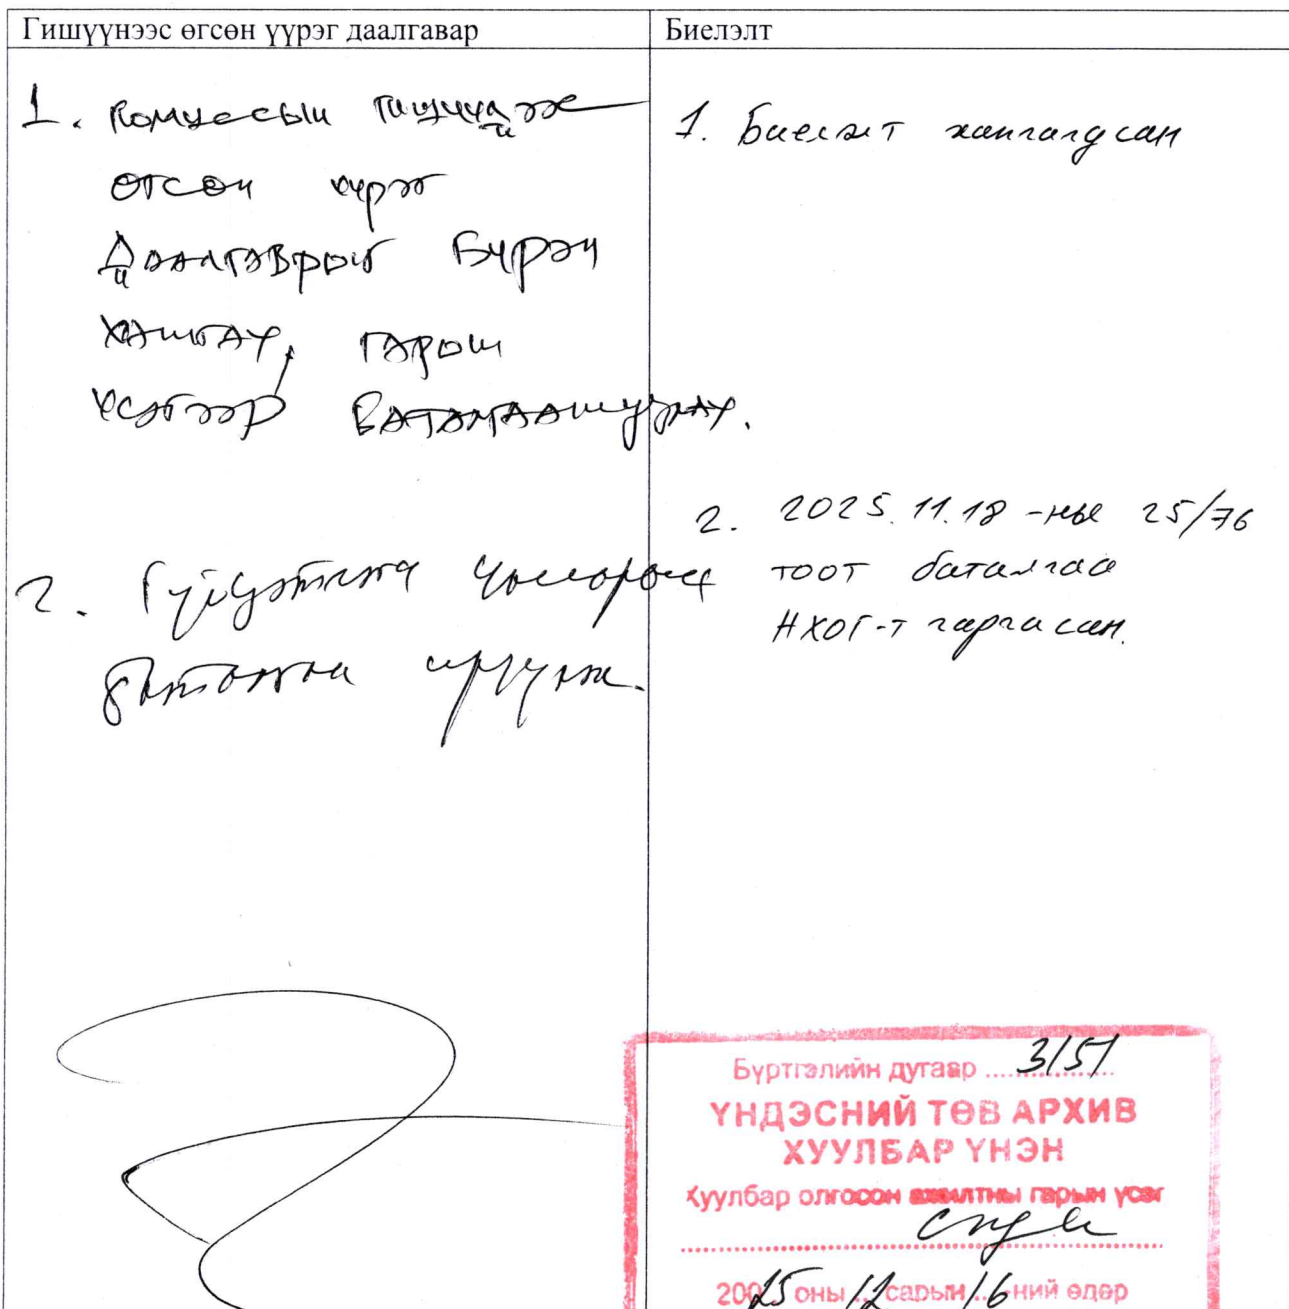 Гишүүнээс өгсөн үүрэг даалгавар
1. Комиссын гишүүдээс
өгсөн үүрэг
Даалгаврыг бүрэн
хангах, гарын
үсгээр баталгаажуулах.
2. Гүйцэтгэх
Биелэлт
1. Биелэлт хангагдсан
2. 2025.11.18-ны 25/76
тоот баталгаа
НХОГ-т гаргасан.
Бүртгэлийн дугаар ..... 3151
ҮНДЭСНИЙ ТӨВ АРХИВ
ХУУЛБАР ҮНЭН
Хуулбар олгосон ажилтны гарын үсэг
200..25 оны 12 сарын 16-ний өдөр